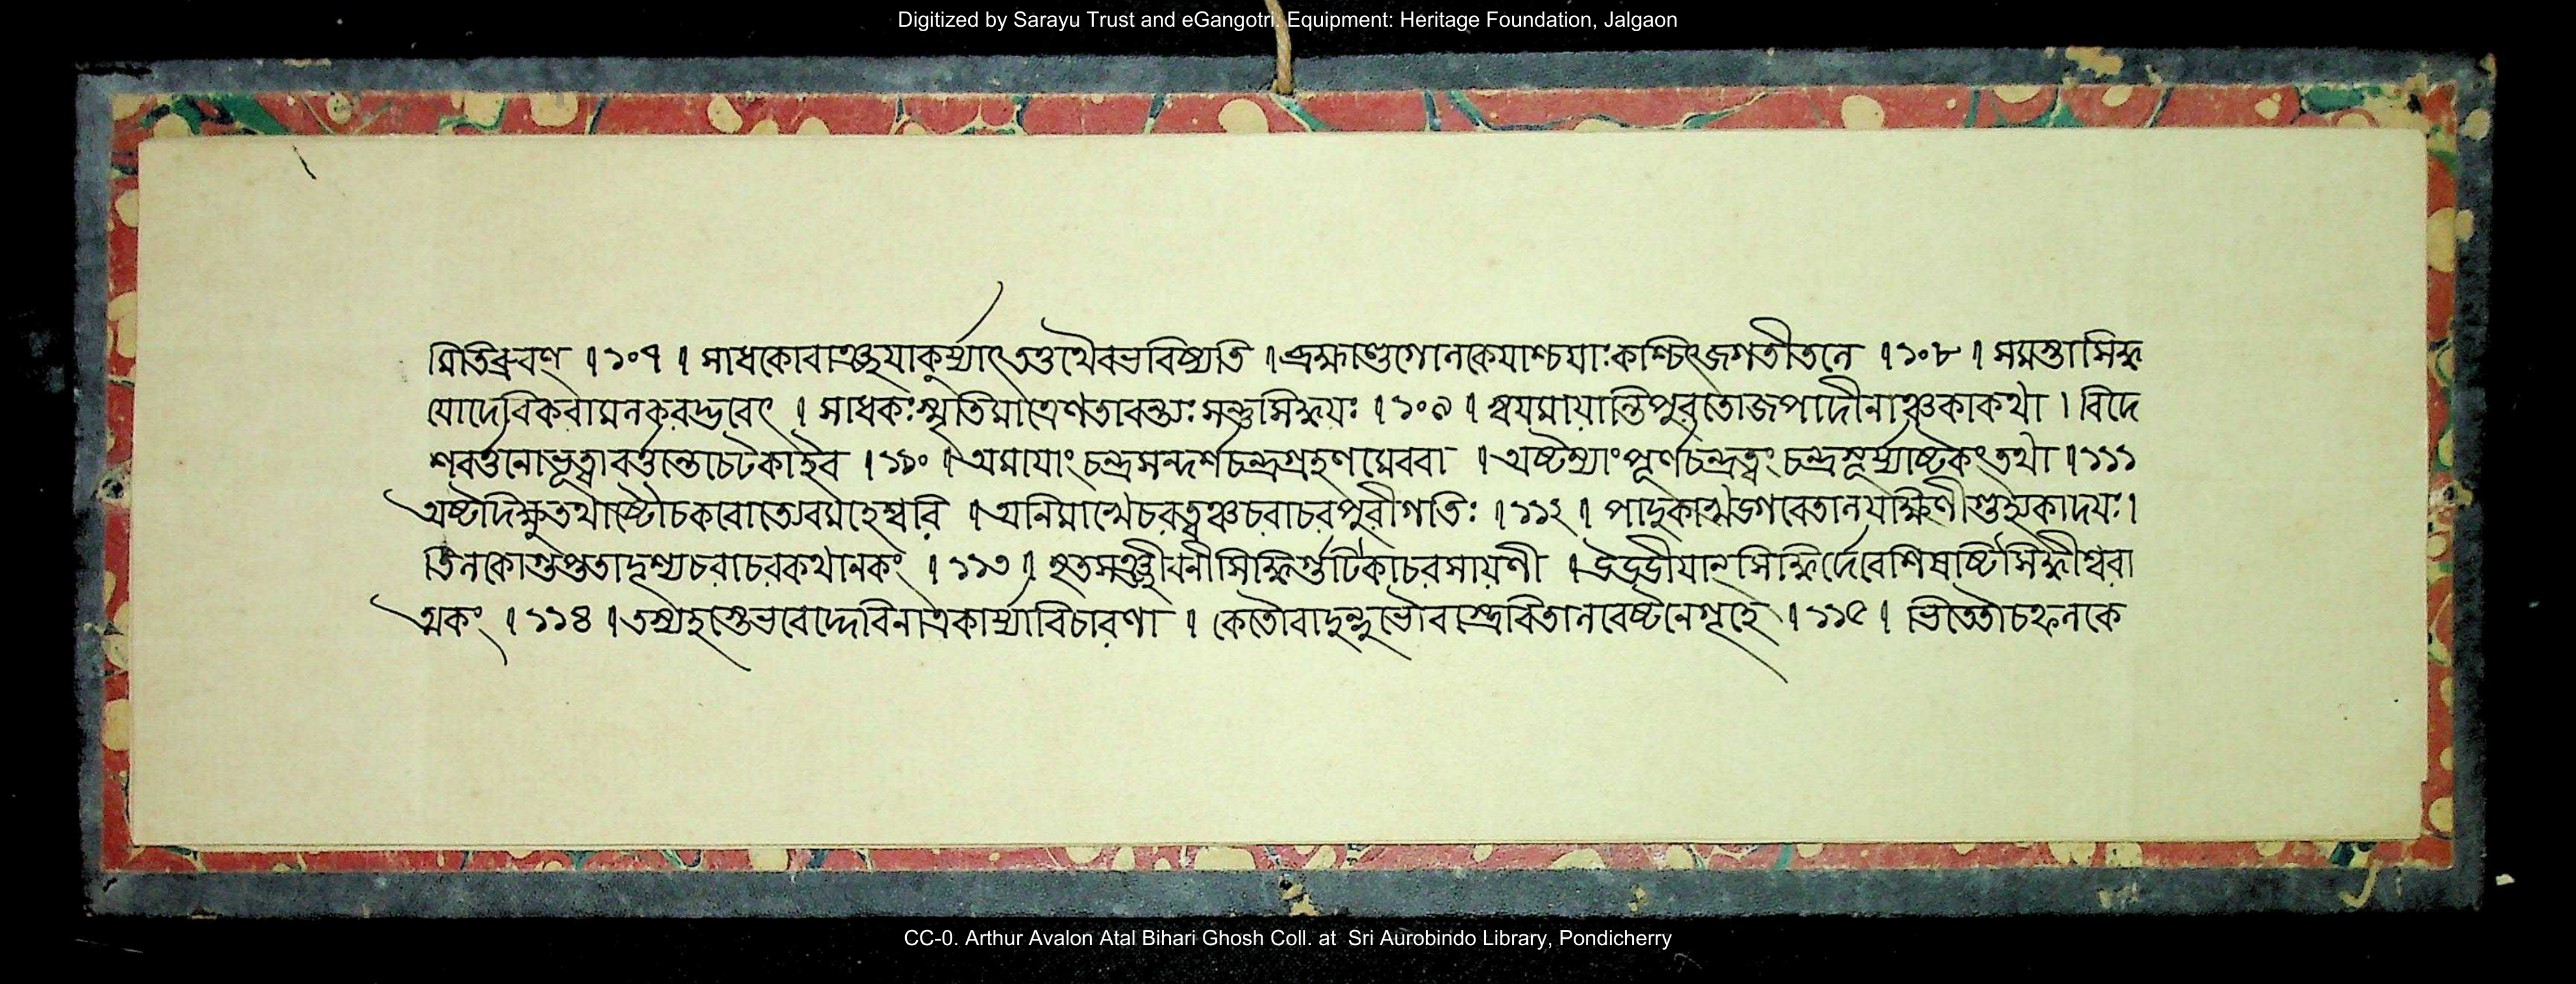 Digitized by Sarayu Trust and eGangotri. Equipment: Heritage Foundation, Jalgaon
মিতিব্রুবণ ॥ ১০৭ ॥ সাধকোবাঞ্ছয়াকুর্য্যাৎতত্তথৈবভবিষ্যতি ॥ ব্রহ্মাণ্ডগোলকেযাশ্চযাঃকাশ্চিৎজগতীতলে ॥ ১০৮ ॥ সমস্তাসিদ্ধ
য়োদেবিকরামলকবদ্ভবেৎ ॥ সাধকঃস্মৃতিমাত্রেণতাবন্ত্যঃসপ্তসিদ্ধয়ঃ ॥ ১০৯ ॥ স্বয়মায়ান্তিপুরতোজপাদীনাঞ্চকাকথা । বিদে
শবর্ত্তিনোভূত্বাবর্ত্তন্তেচেটকাইব ॥ ১১০ ॥ অমায়াং চন্দ্রসন্দর্শচন্দ্রগ্রহণমেববা ॥ অষ্টম্যাংপূর্ণচন্দ্রত্বং চন্দ্রসূর্য্যাষ্টকংতথা ॥ ১১১
অষ্টদিক্ষুতথাষ্টৌচকরোত্যেবমহেশ্বরি ॥ অনিমাখেচরত্বঞ্চচরাচরপুরীগতিঃ ॥ ১১২ ॥ পাদুকাখড়্গবেতালযক্ষিণীগুহ্যকাদয়ঃ ।
তিলকোগুপ্ততাদৃশ্যচরাচরকথানকং ॥ ১১৩ ॥ মৃতসঞ্জীবনীসিদ্ধির্গুটিকাচরসায়ণী ॥ সিদ্ধির্দেবেশিষষ্টিসিদ্ধীশ্বরা
ত্মকং ॥ ১১৪ ॥ তস্যহস্তেভবেদ্দেবিনাত্রকার্য্যাবিচারণা ॥ কেতৌবাদুন্দুভৌবাস্ত্রবিতানবেষ্টনেগৃহে ॥ ১১৫ ॥ ভিত্তৌচফলকে
CC-0. Arthur Avalon Atal Bihari Ghosh Coll. at Sri Aurobindo Library, Pondicherry